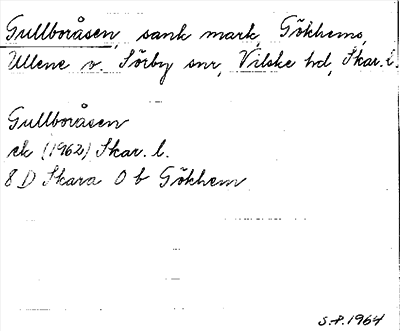 Gullboråsen, sank mark, Gökhems,
Ullene o. Sörby snr, Vilske hd, Skar. l.
Gullboråsen
ek (1962) Skar. l.
8 D Skara O b Gökhem
S.P. 1964